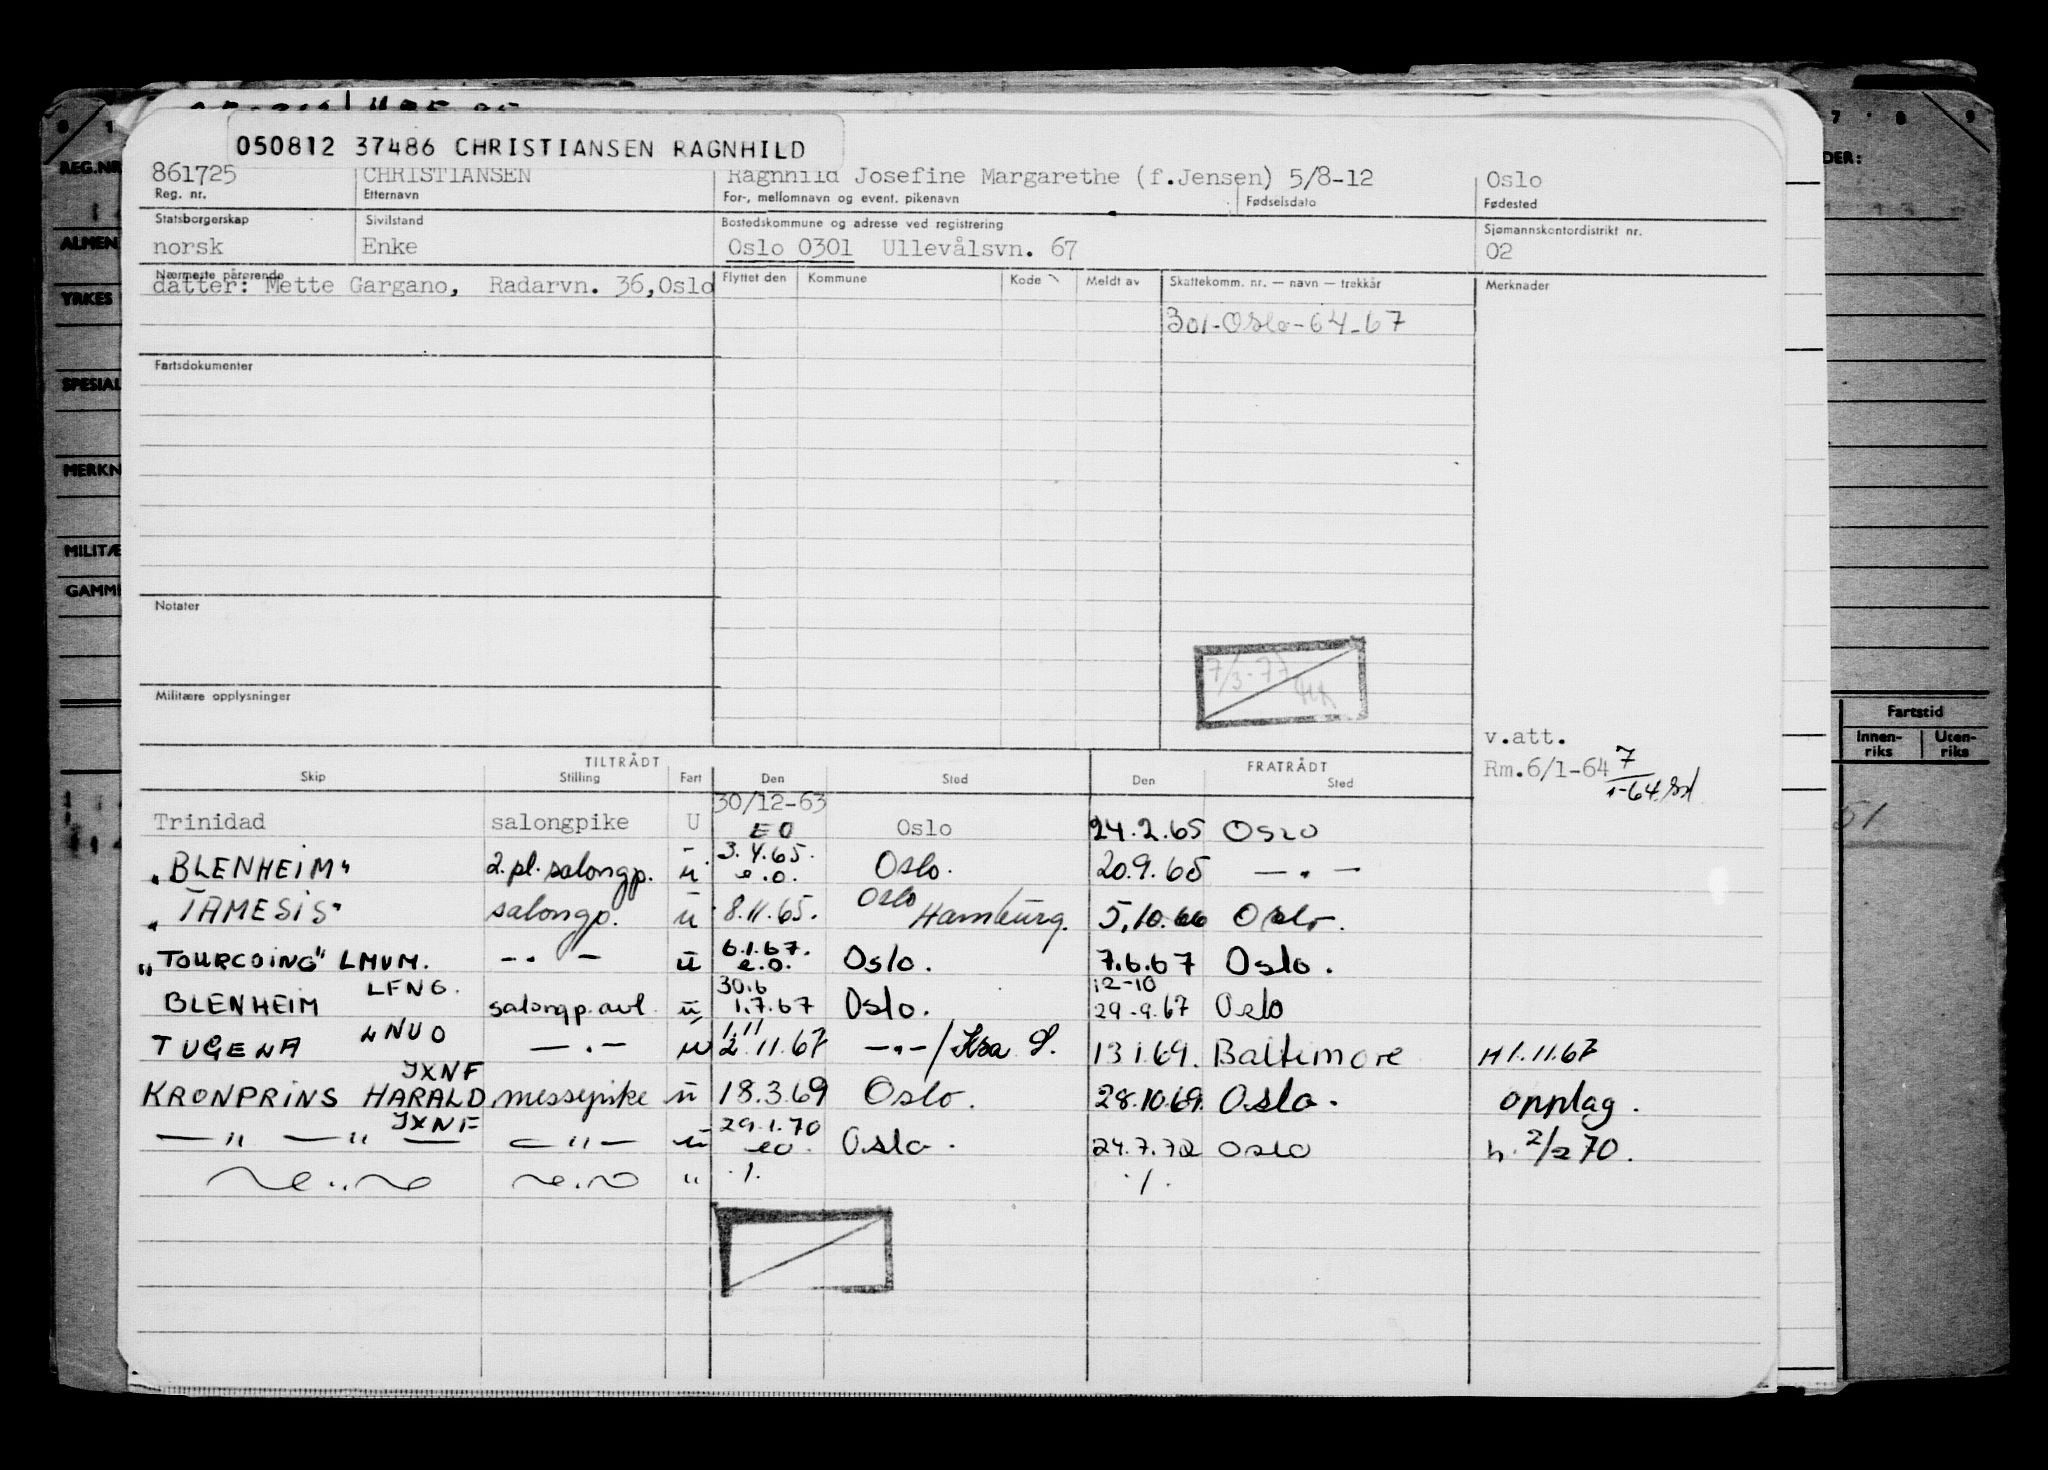 050812 37486 CHRISTIANSEN RAGNHILD
861725 CHRISTIANSEN Ragnhild Josefine Margarethe (f.Jensen) 5/8-12 Oslo
Reg. nr. Etternavn For-, mellomnavn og event. pikenavn Fødselsdato Fødested
Statsborgerskap Sivilstand Bostedskommune og adresse ved registrering Sjømannskontordistrikt nr.
norsk Enke Oslo 0301 Ullevålsvn. 67 02
Nærmeste pårørende Flyttet den Kommune Kode Meldt av Skattekomm. nr. — navn — trekkår Merknader
datter: Mette Gargano, Radarvn. 36,Oslo
301-Oslo-64-67
Fartsdokumenter
Notater
7/3-77
Militære opplysninger
v.att.
Rm.6/1-64 7/1-64
TILTRÅDT FRATRÅDT
Skip Stilling Fart Den Sted Den Sted
30/12-63
Trinidad salongpike U EO Oslo 24.2.65 OSLO
"BLENHEIM" 2.pl.salongp. u 3.4.65. e.o. Oslo. 20.9.65 — . —
"TAMESIS" salongp. u 8.11.65. Oslo Hamburg. 5.10.66 Oslo.
"TOURCOING" LMVM. — . — u 6.1.67. e.o. Oslo. 7.6.67 Oslo.
BLENHEIM LFNG. salongp.avl. u 30.6 1.7.67 Oslo. 12-10 29-9.67 Oslo
TUGENA LNUO — . — u 1.11 2.11.67 — . — / Kra S. 13.1.69. Baltimore H 1.11.67
KRONPRINS HARALD JXNF messepike u 18.3.69 Oslo. 28.10.69. Oslo. opplag.
— " — " — JXNF — " — u 29.1.70 eo. Oslo. 24.7.72 OSLO h. 2/2 70.
" ./. ./.
REG.NR
ALMEN
YRKES
SPESIAL
MERKN
MILITÆ
GAMME
DER:
7 8 9
Fartstid
Innen-riks Uten-riks
51